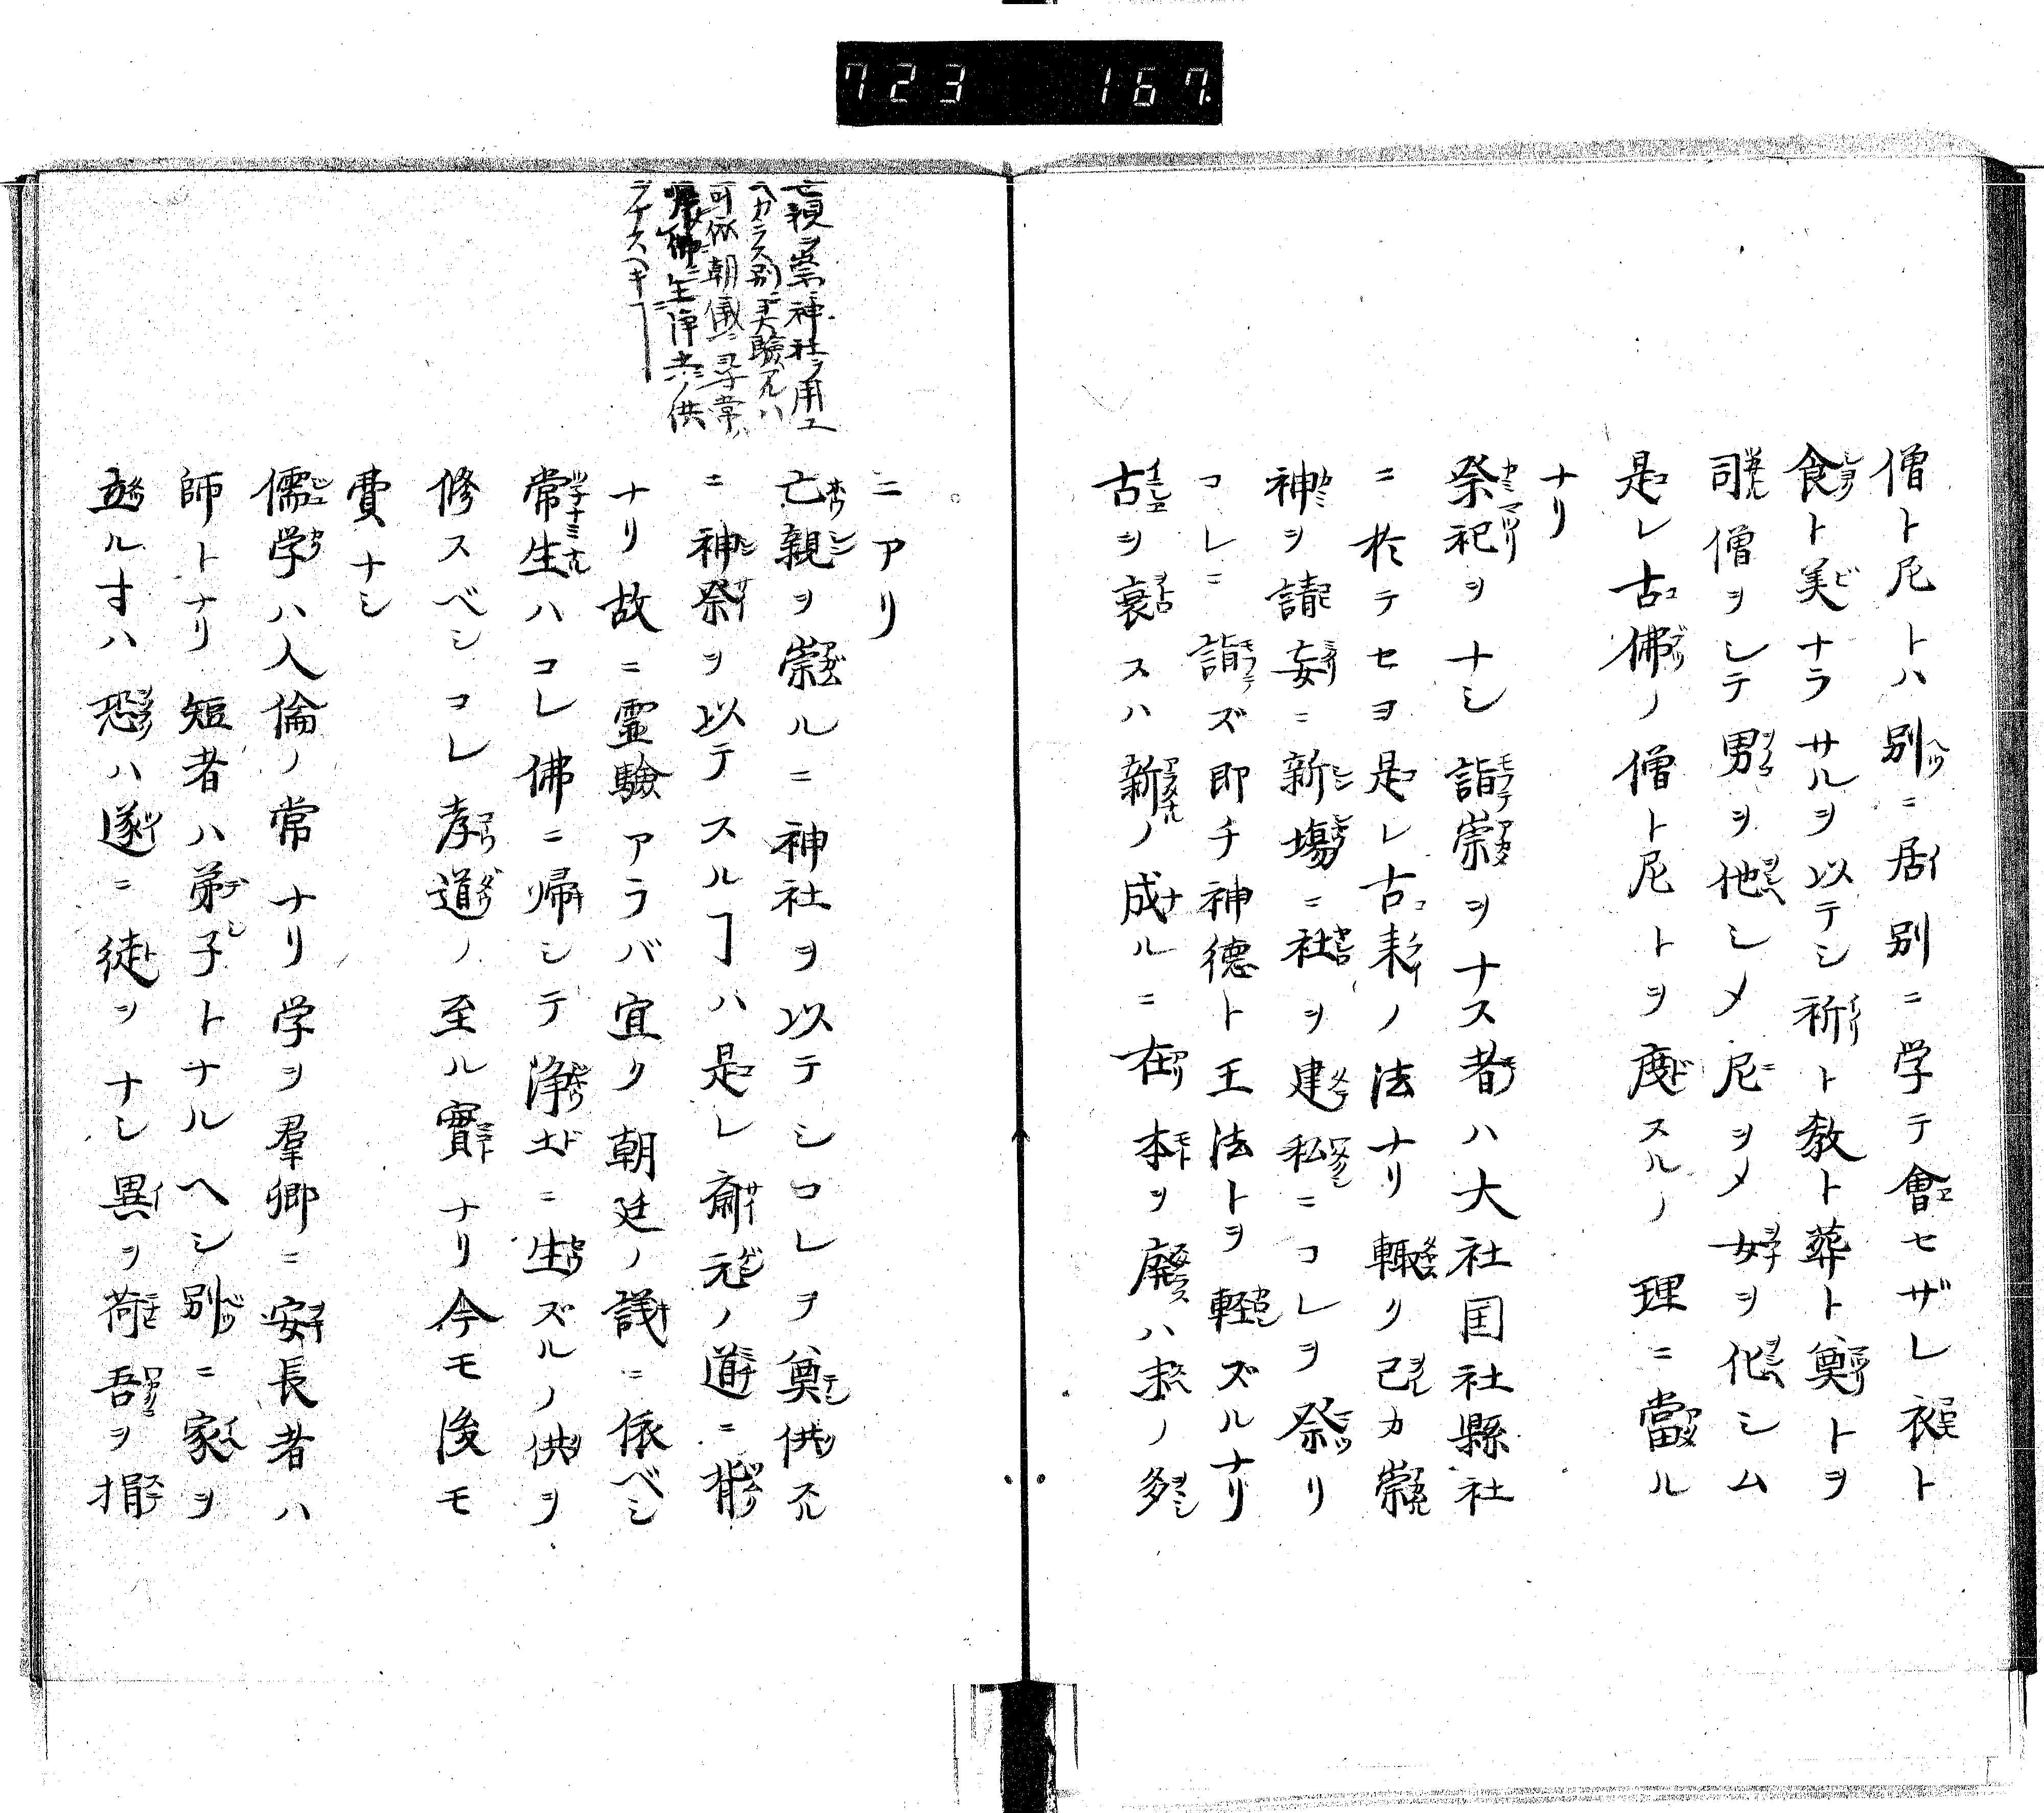 723 167.
僧ト尼トハ別ニ居別ニ学テ會セザレ衣ト
食ト美ナラサルヲ以テシ祈ト教ト葬ト奠トヲ
司僧ヲシテ男ヲ他シメ尼ヲメ女ヲ化シム
是レ古佛ノ僧ト尼トヲ度スルノ理ニ當ル
ナリ
祭祀ヲナシ詣崇ヲナス者ハ大社国社縣社
ニ於テセヨ是レ古来ノ法ナリ輙ク己カ崇
神ヲ請妄ニ新場ニ社ヲ建私ニコレヲ祭リ
コレニ詣ズ即チ神德ト王法トヲ軽ズルナリ
古ヲ衰スハ新ノ成ルニ在本ヲ廃ハ末ノ多
ニアリ
亡親ヲ崇ルニ神社ヲ以テシコレヲ奠供スル
ニ神祭ヲ以テスルヿハ是レ齋元ノ道ニ背
ナリ故ニ霊驗アラバ宜ク朝廷ノ議ニ依ベシ
常生ハコレ佛ニ帰シテ浄土ニ生ズルノ供ヲ
修スベシコレ孝道ノ至ル實ナリ今モ後モ
費ナシ
儒学ハ人倫ノ常ナリ学ヲ羣卿ニ安長者ハ
師トナリ短者ハ弟子トナルヘシ別ニ家ヲ
立ルヿハ恐ハ遂ニ徒ヲナシ異ヲ荷吾ヲ揖
亡親ヲ崇神社ヲ用ユ
ヘカラス別ニ霊驗アルハ
可依朝儀ニ尋常ハ
帰佛生浄土ノ供
ヲナスヘキヿ